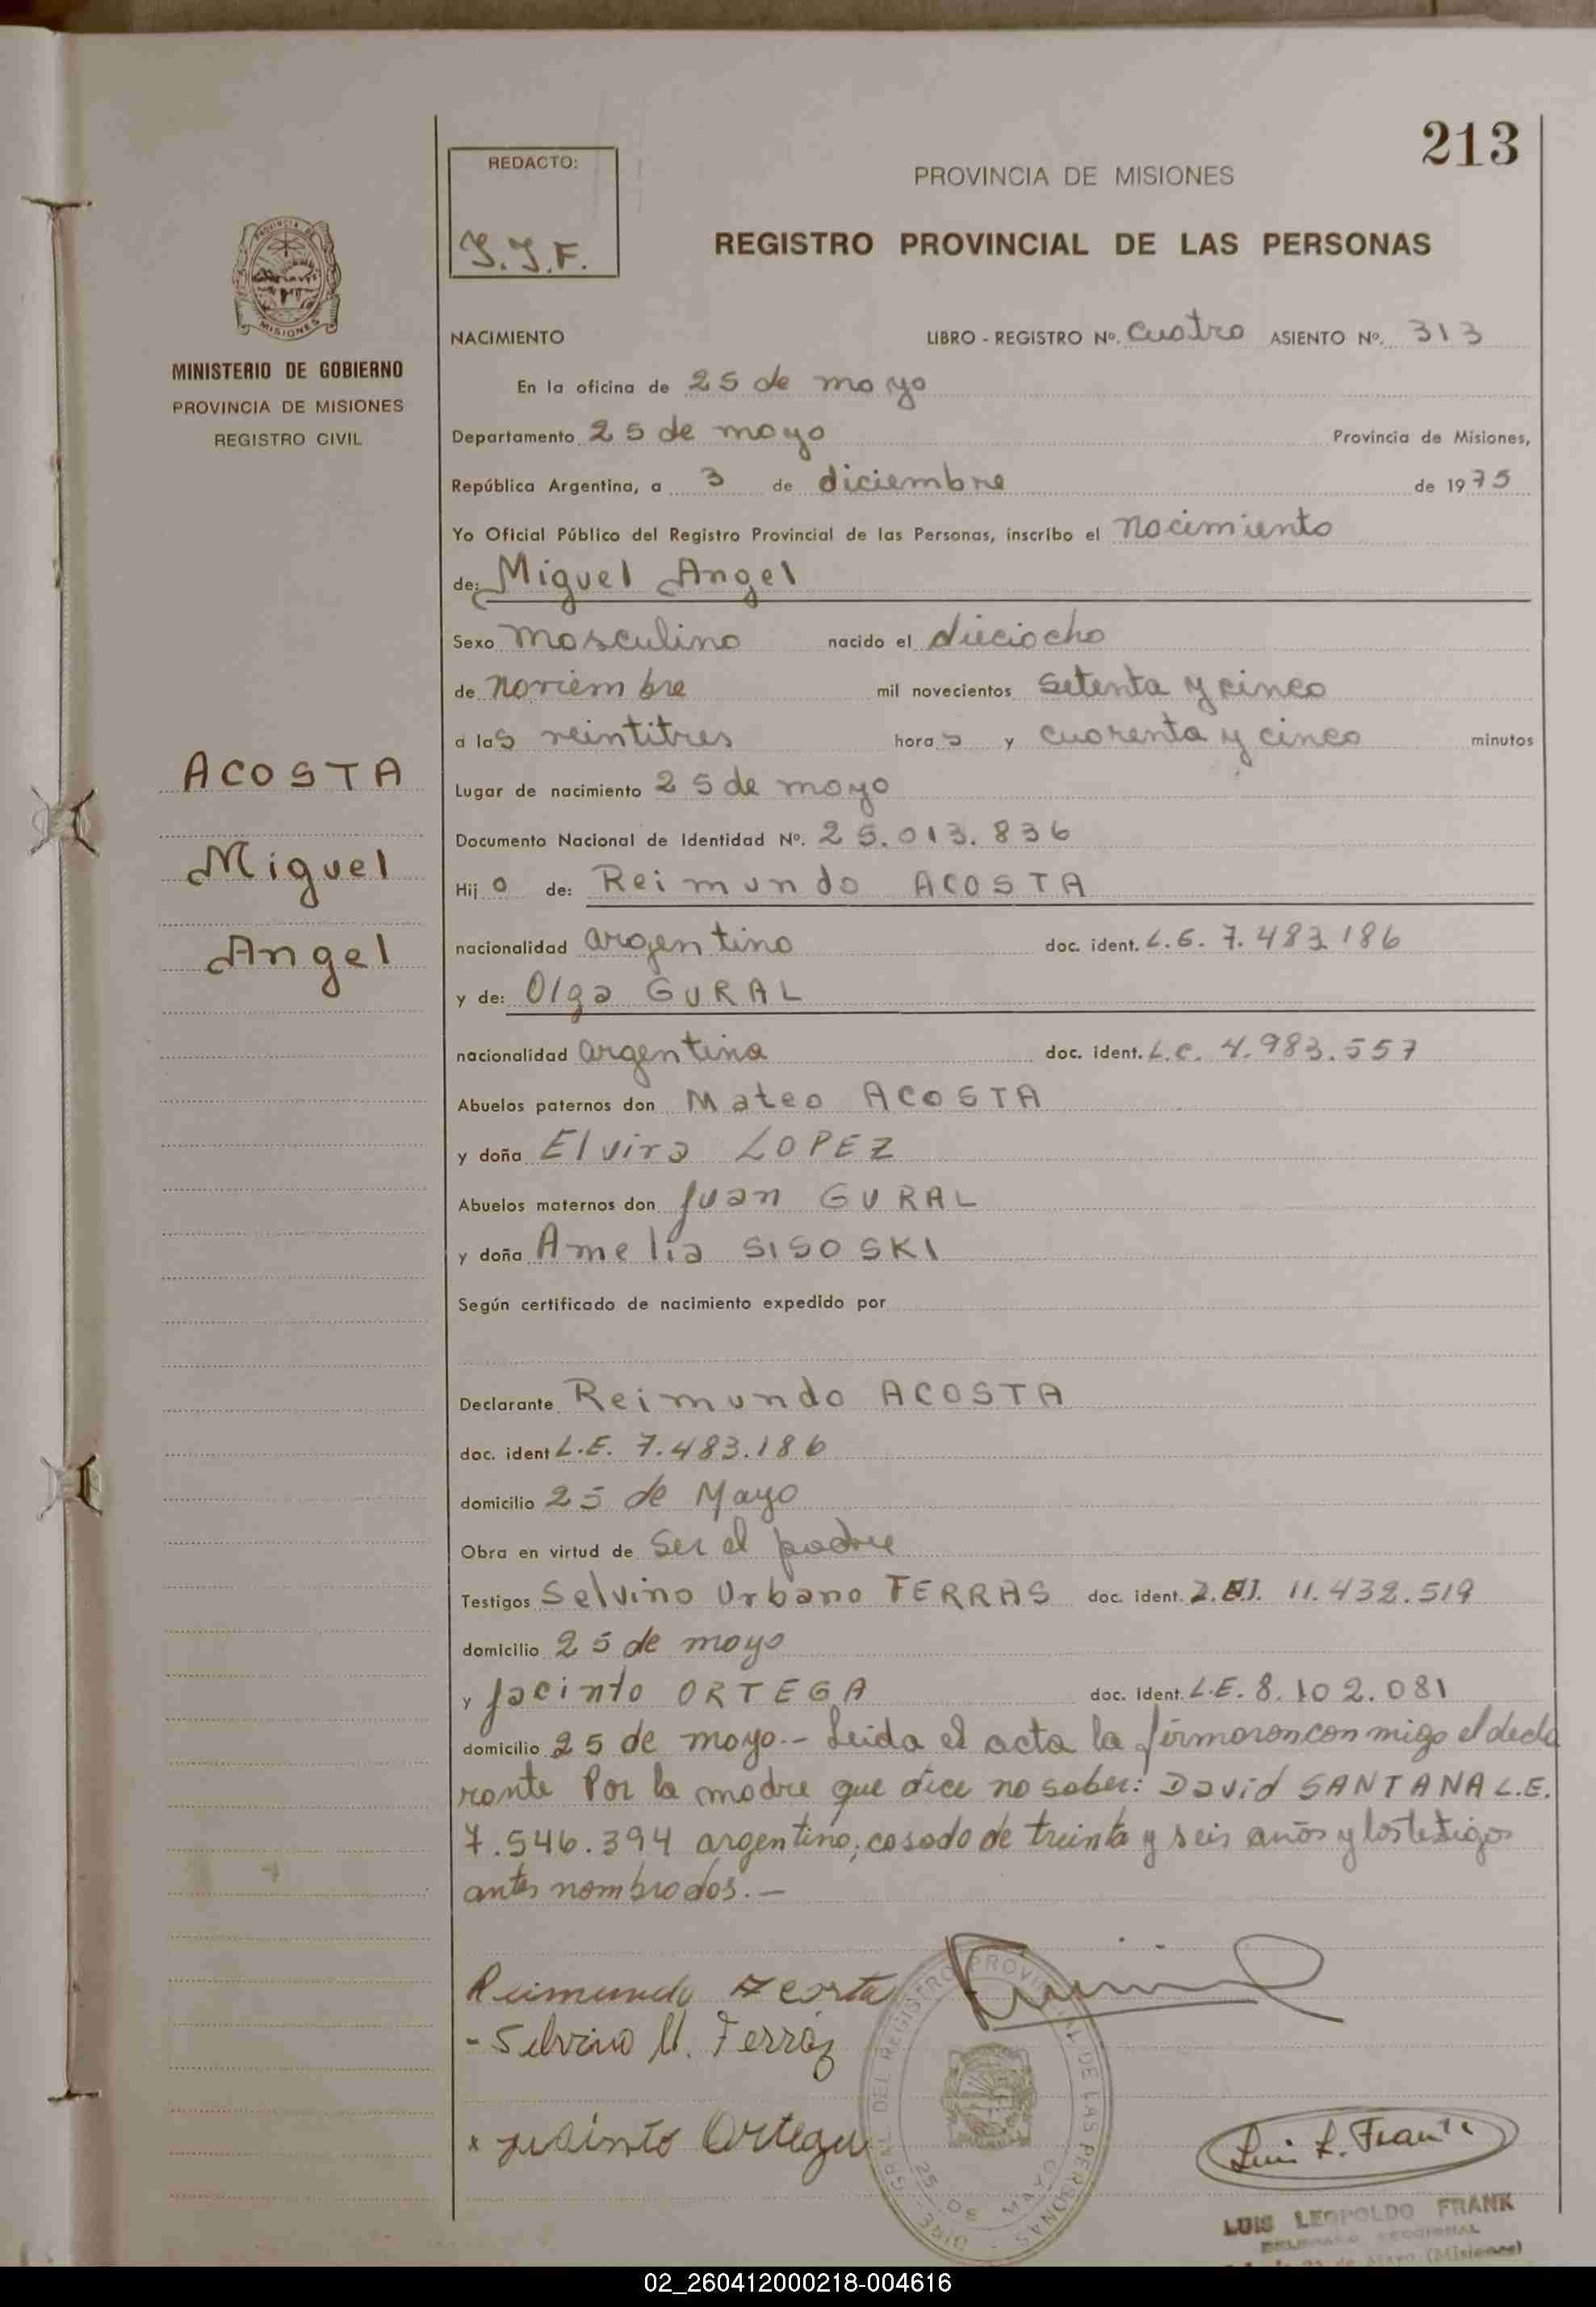 213
REDACTO:
PROVINCIA DE MISIONES
J.J.F.
REGISTRO PROVINCIAL DE LAS PERSONAS
MISIONES
MINISTERIO DE GOBIERNO
PROVINCIA DE MISIONES
REGISTRO CIVIL
NACIMIENTO LIBRO - REGISTRO Nº. cuatro ASIENTO Nº. 313
En la oficina de 25 de mayo
Departamento 25 de mayo Provincia de Misiones,
República Argentina, a 3 de diciembre de 1975
Yo Oficial Público del Registro Provincial de las Personas, inscribo el nacimiento
de: Miguel Angel
Sexo masculino nacido el dieciocho
de noviembre mil novecientos setenta y cinco
a las veintitres horas y cuarenta y cinco minutos
ACOSTA
Miguel
Angel
Lugar de nacimiento 25 de mayo
Documento Nacional de Identidad Nº. 25.013.836
Hijo de: Reimundo ACOSTA
nacionalidad argentino doc. ident. L.E. 7.483.186
y de: Olga GURAL
nacionalidad argentina doc. ident. L.C. 4.983.557
Abuelos paternos don Mateo ACOSTA
y doña Elvira LOPEZ
Abuelos maternos don Juan GURAL
y doña Amelia SISOSKI
Según certificado de nacimiento expedido por
Declarante Reimundo ACOSTA
doc. ident L.E. 7.483.186
domicilio 25 de Mayo
Obra en virtud de ser el padre
Testigos Selvino Urbano FERRAS doc. ident. 11.432.519
domicilio 25 de mayo
y Jacinto ORTEGA doc. Ident. L.E. 8.102.081
domicilio 25 de mayo.- Leida el acta la firmaron conmigo el decla
rante Por la madre que dice no saber: David SANTANA L.E.
7.546.394 argentino, casado de treinta y seis años y los testigos
antes nombrados.-
Reimundo Acosta
- Selvino U. Ferráz
x Jasinto Ortega
DIRE. GRAL. DEL REGISTRO PROVINCIAL DE LAS PERSONAS
25 DE MAYO
Luis L. Frank
LUIS LEOPOLDO FRANK
DELEGADO SECCIONAL
25 de Mayo (Misiones)
02_260412000218-004616